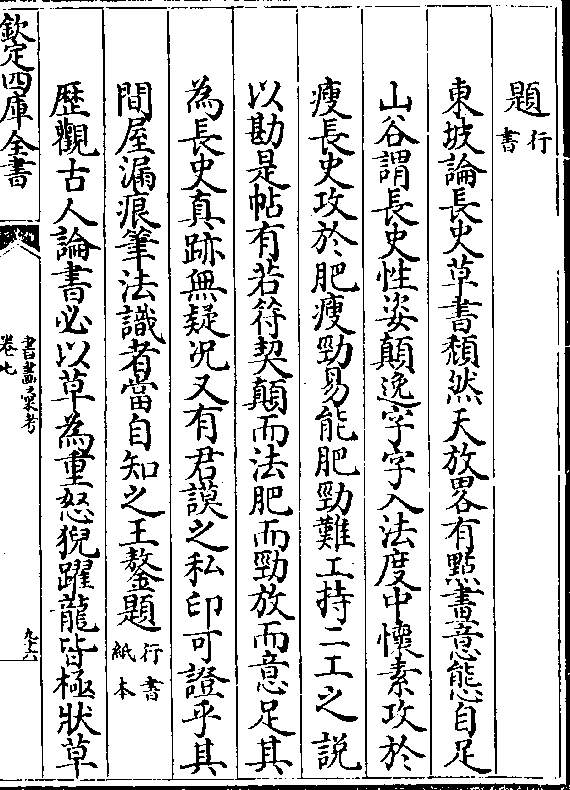 題行書
東坡論長史草書頹然天放畧有點畫意態自足
山谷謂長史性姿顛逸字字入法度中懷素攻於
瘦長史攻於肥瘦勁易能肥勁難工持二工之說
以勘是帖有若符契顛而法肥而勁放而意足其
為長史真跡無疑况又有君謨之私印可證乎其
間屋漏痕筆法識者當自知之王鏊題行書紙本
歷觀古人論書必以草為重怒猊躍龍皆極狀草
欽定四庫全書
書畫彚考
卷七
九十六